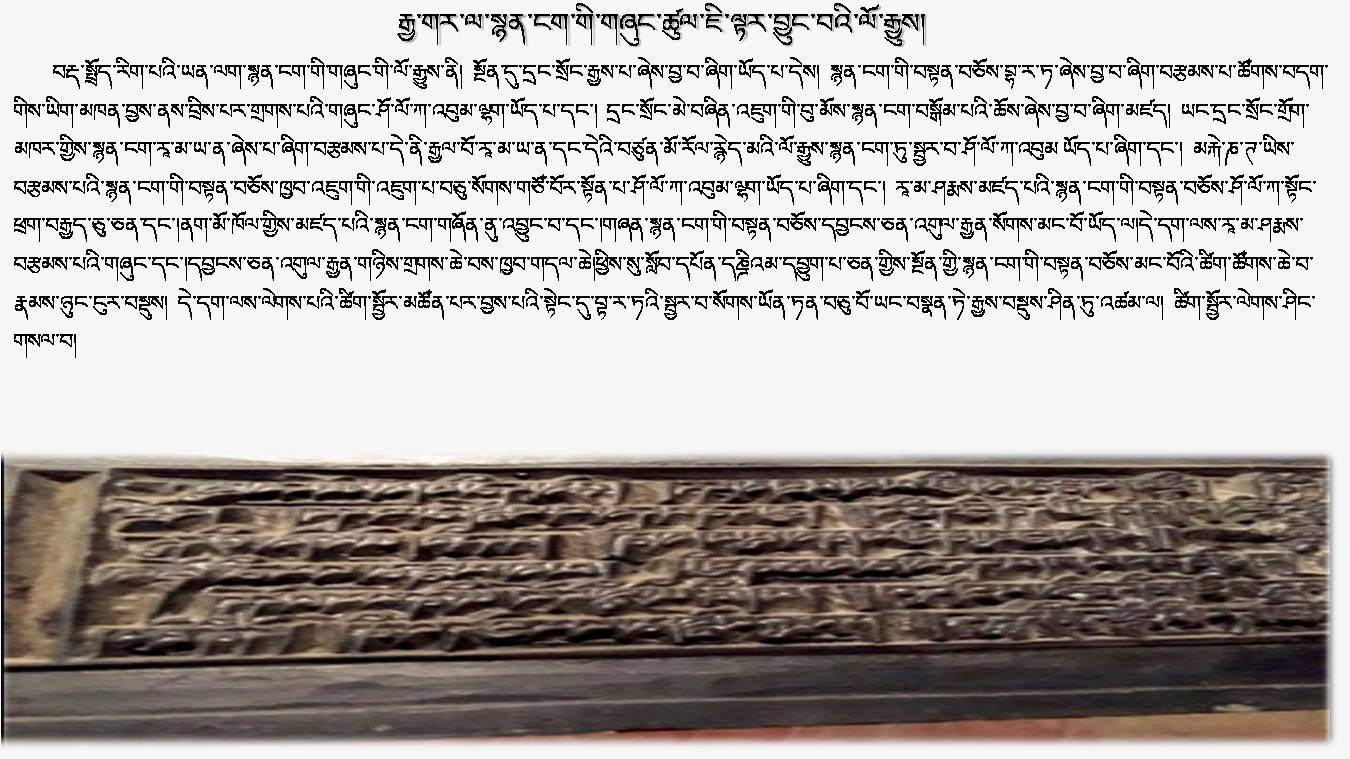 རྒྱ་གར་ལ་སྙན་ངག་གི་གཞུང་ཚུལ་ཇི་ལྟར་བྱུང་བའི་ལོ་རྒྱུས།
བརྡ་སྤྲོད་རིག་པའི་ཡན་ལག་སྙན་ངག་གི་གཞུང་གི་ལོ་རྒྱུས་ནི། སྔོན་དུ་དྲང་སྲོང་རྒྱས་པ་ཞེས་བྱ་བ་ཞིག་ཡོད་པ་དེས། སྙན་ངག་གི་བསྟན་བཅོས་བྷ་ར་ཏ་ཞེས་བྱ་བ་ཞིག་བརྩམས་པ་ཚོགས་བདག་
གིས་ཡིག་མཁན་བྱས་ནས་བྲིས་པར་གྲགས་པའི་གཞུང་ཤོ་ལོ་ཀ་འབུམ་ལྷག་ཡོད་པ་དང་། དྲང་སྲོང་མེ་བཞིན་འཇུག་གི་བུ་མོས་སྙན་ངག་བསྒོམ་པའི་ཆོས་ཞེས་བྱ་བ་ཞིག་མཛད། ཡང་དྲང་སྲོང་གྲོག་
མཁར་གྱིས་སྙན་ངག་རཱ་མ་ཡ་ན་ཞེས་པ་ཞིག་བརྩམས་པ་དེ་ནི་རྒྱལ་པོ་རཱ་མ་ཡ་ན་དང་དེའི་བཙུན་མོ་རོལ་རྙེད་མའི་ལོ་རྒྱུས་སྙན་ངག་ཏུ་སྦྱར་བ་ཤོ་ལོ་ཀ་འབུམ་ཡོད་པ་ཞིག་དང་།
བརྩམས་པའི་སྙན་ངག་གི་བསྟན་བཅོས་ཁྱབ་འཇུག་གི་འཇུག་པ་བཅུ་སོགས་གཙོ་བོར་སྟོན་པ་ཤོ་ལོ་ཀ་འབུམ་ལྷག་ཡོད་པ་ཞིག་དང་། རཱ་མ་ཤརྨས་མཛད་པའི་སྙན་ངག་གི་བསྟན་བཅོས་ཤོ་ལོ་ཀ་སྟོང་
ཕྲག་བརྒྱད་ཅུ་ཅན་དང་།ནག་མོ་ཁོལ་གྱིས་མཛད་པའི་སྙན་ངག་གཞོན་ནུ་འབྱུང་བ་དང་།གཞན་སྙན་ངག་གི་བསྟན་བཅོས་དབྱངས་ཅན་འགུལ་རྒྱན་སོགས་མང་པོ་ཡོད་ལ།དེ་དག་ལས་རཱ་མ་ཤརྨས་
བརྩམས་པའི་གཞུང་དང་།དབྱངས་ཅན་འགུལ་རྒྱན་གཉིས་གྲགས་ཆེ་བས་ཁྱབ་གདལ་ཆེ།ཕྱིས་སུ་སློབ་དཔོན་དཎྜིའམ་དབྱུག་པ་ཅན་གྱིས་སྔོན་གྱི་སྙན་ངག་གི་བསྟན་བཅོས་མང་པོའི་ཚིག་ཚོགས་ཆེ་བ་
རྣམས་ཉུང་ངུར་བསྡུས། དེ་དག་ལས་ལེགས་པའི་ཚིག་སྦྱོར་མཚོན་པར་བྱས་པའི་སྟེང་དུ་བྷ་ར་ཏའི་སྦྱར་བ་སོགས་ཡོན་ཏན་བཅུ་པོ་ཡང་བསྣན་ཏེ་རྒྱས་བསྡུས་ཤིན་ཏུ་འཚམ་ལ། ཚིག་སྦྱོར་ལེགས་ཤིང་
གསལ་བ།